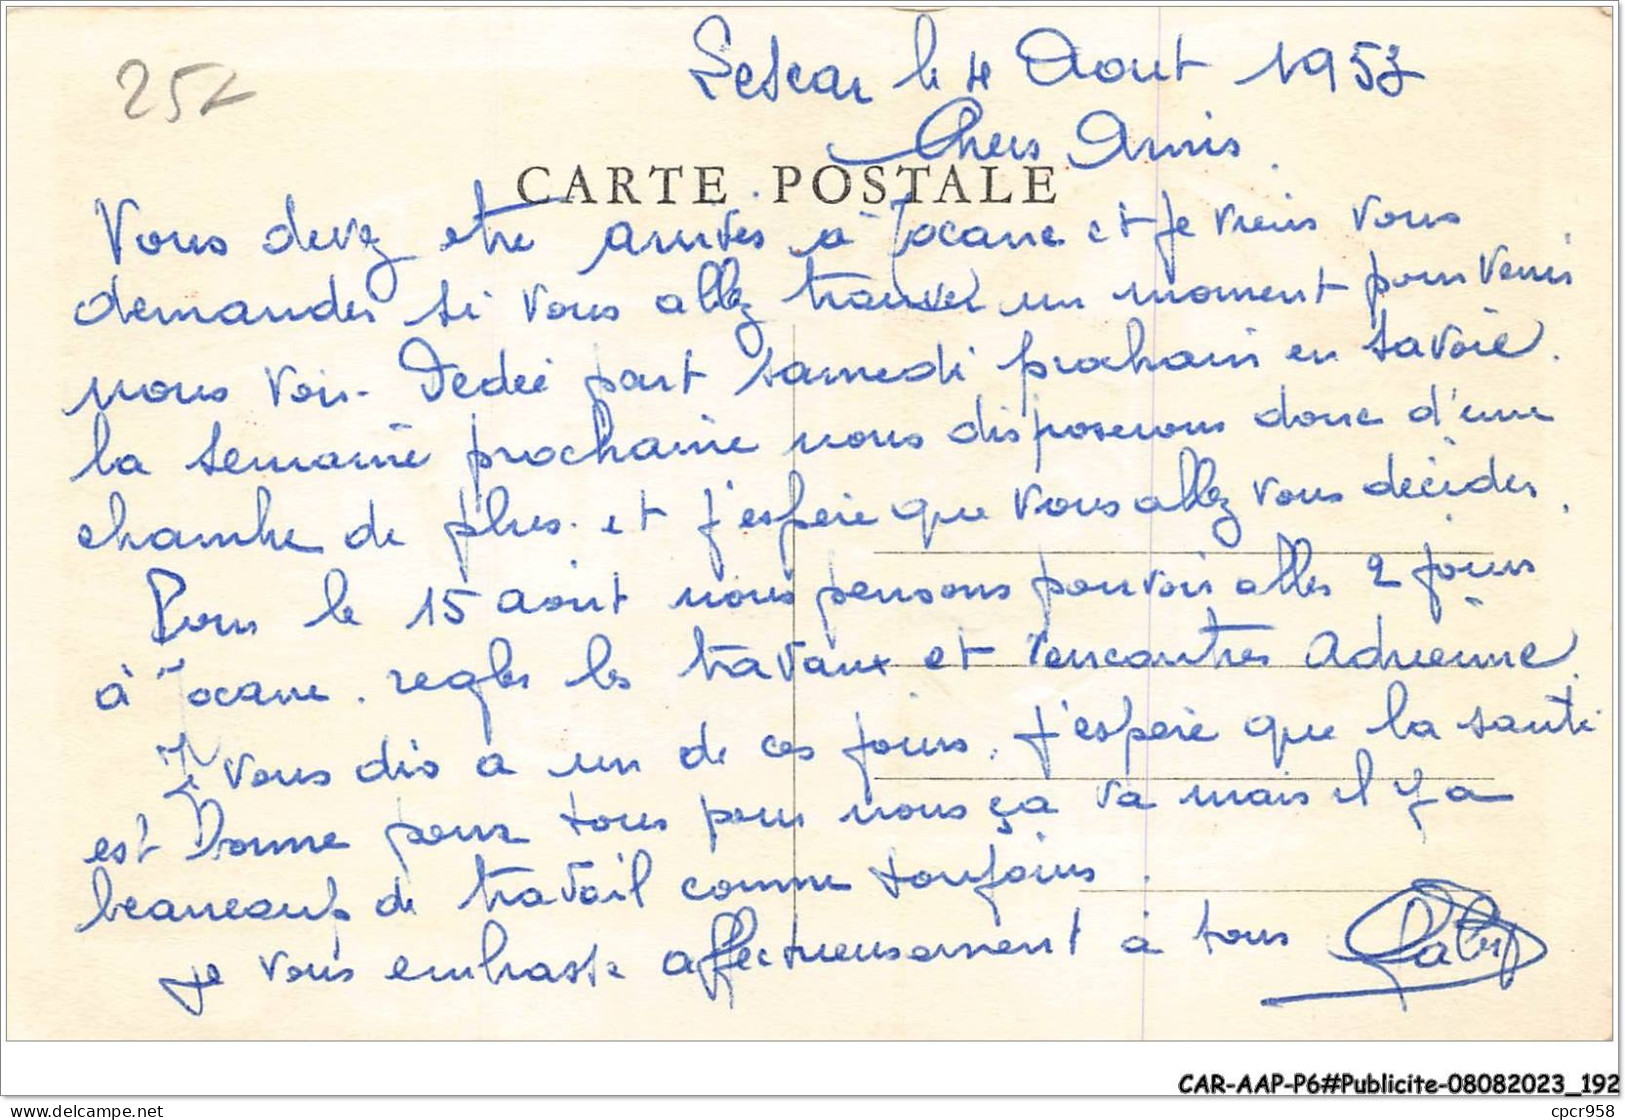 252
Lescar le 4 Aout 1953
Chers Amis.
CARTE POSTALE
Vous devez etre arrivés à Tocane et je viens vous
demander si vous allez trouver un moment pour venir
nous voir. Dédée part samedi prochain en Savoie.
la semaine prochaine nous disposerons donc d'une
chambre de plus. et j'espère que vous allez vous décider.
Pour le 15 aout nous pensons pouvoir aller 2 jours
à Tocane. regler les travaux et rencontrer Adrienne.
Je vous dis a un de ces jours. J'espère que la santé
est Bonne pour tous pour nous ça va mais il y a
beaucoup de travail comme toujours.
Je vous embrasse affectueusement à tous
CAR-AAP-P6#Publicite-08082023_192
delcampe.net
cpcr958